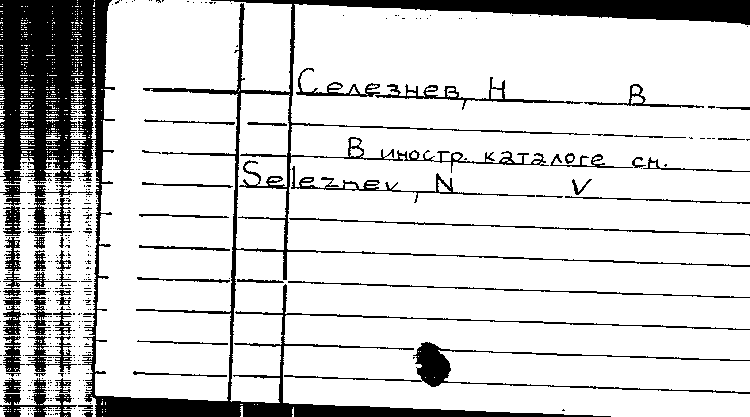 Селезнев, Н В
В иностр. каталоге см.
Seleznev, N V